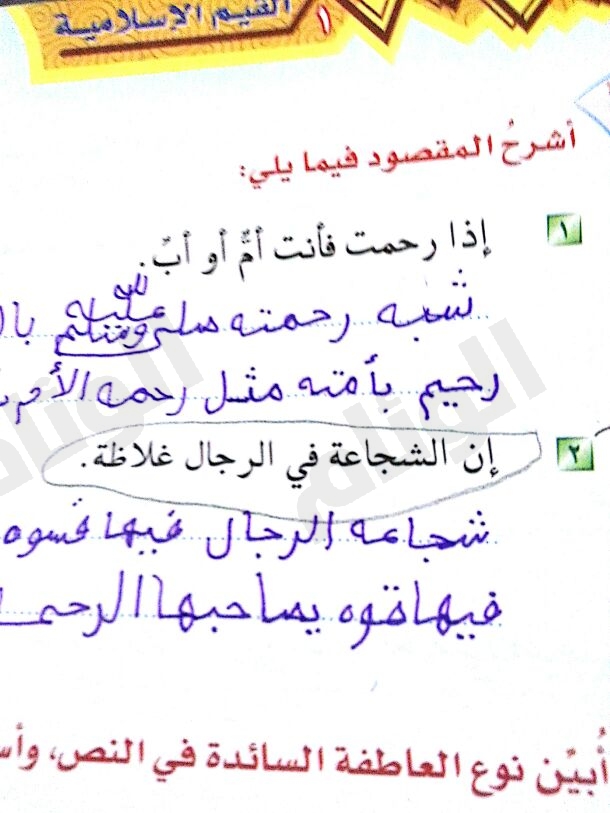 القيم الإسلامية
١
أشرحُ المقصود فيما يلي:
١ إذا رحمت فأنت أمٌّ أو أبٌ.
شبه رحمته صلى الله عليه وسلم
رحيم بأمته مثل رحمه الأم
٢ إن الشجاعة في الرجال غلاظة.
شجاعه الرجال فيها قسوه
فيها قوه يصاحبها
أُبيّن نوع العاطفة السائدة في النص،